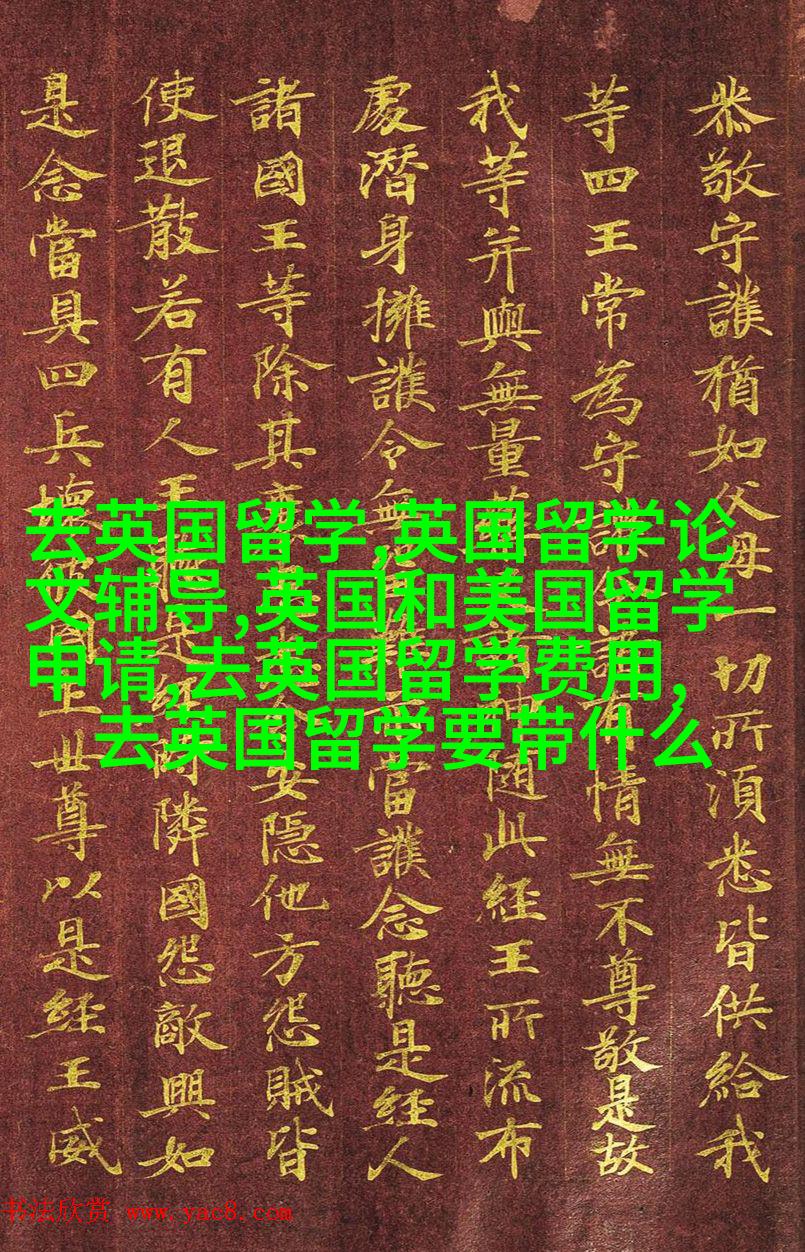 恭敬守護猶如父母一切所須悉皆供給我
等四王常為守護有情無不尊敬是故
我等并與無量隨此經王所流布
處潛身擁護令無當護念聽是經人
諸國王等除其安隱他方怨賊皆
使退散若有人王是經時隣國怨敵興如
是念當具四兵壞國土世尊以是經王威
去英国留学,英国留学论
文辅导,英国和美国留学
申请,去英国留学费用,
去英国留学要带什么
书法欣赏 www.yac8.com